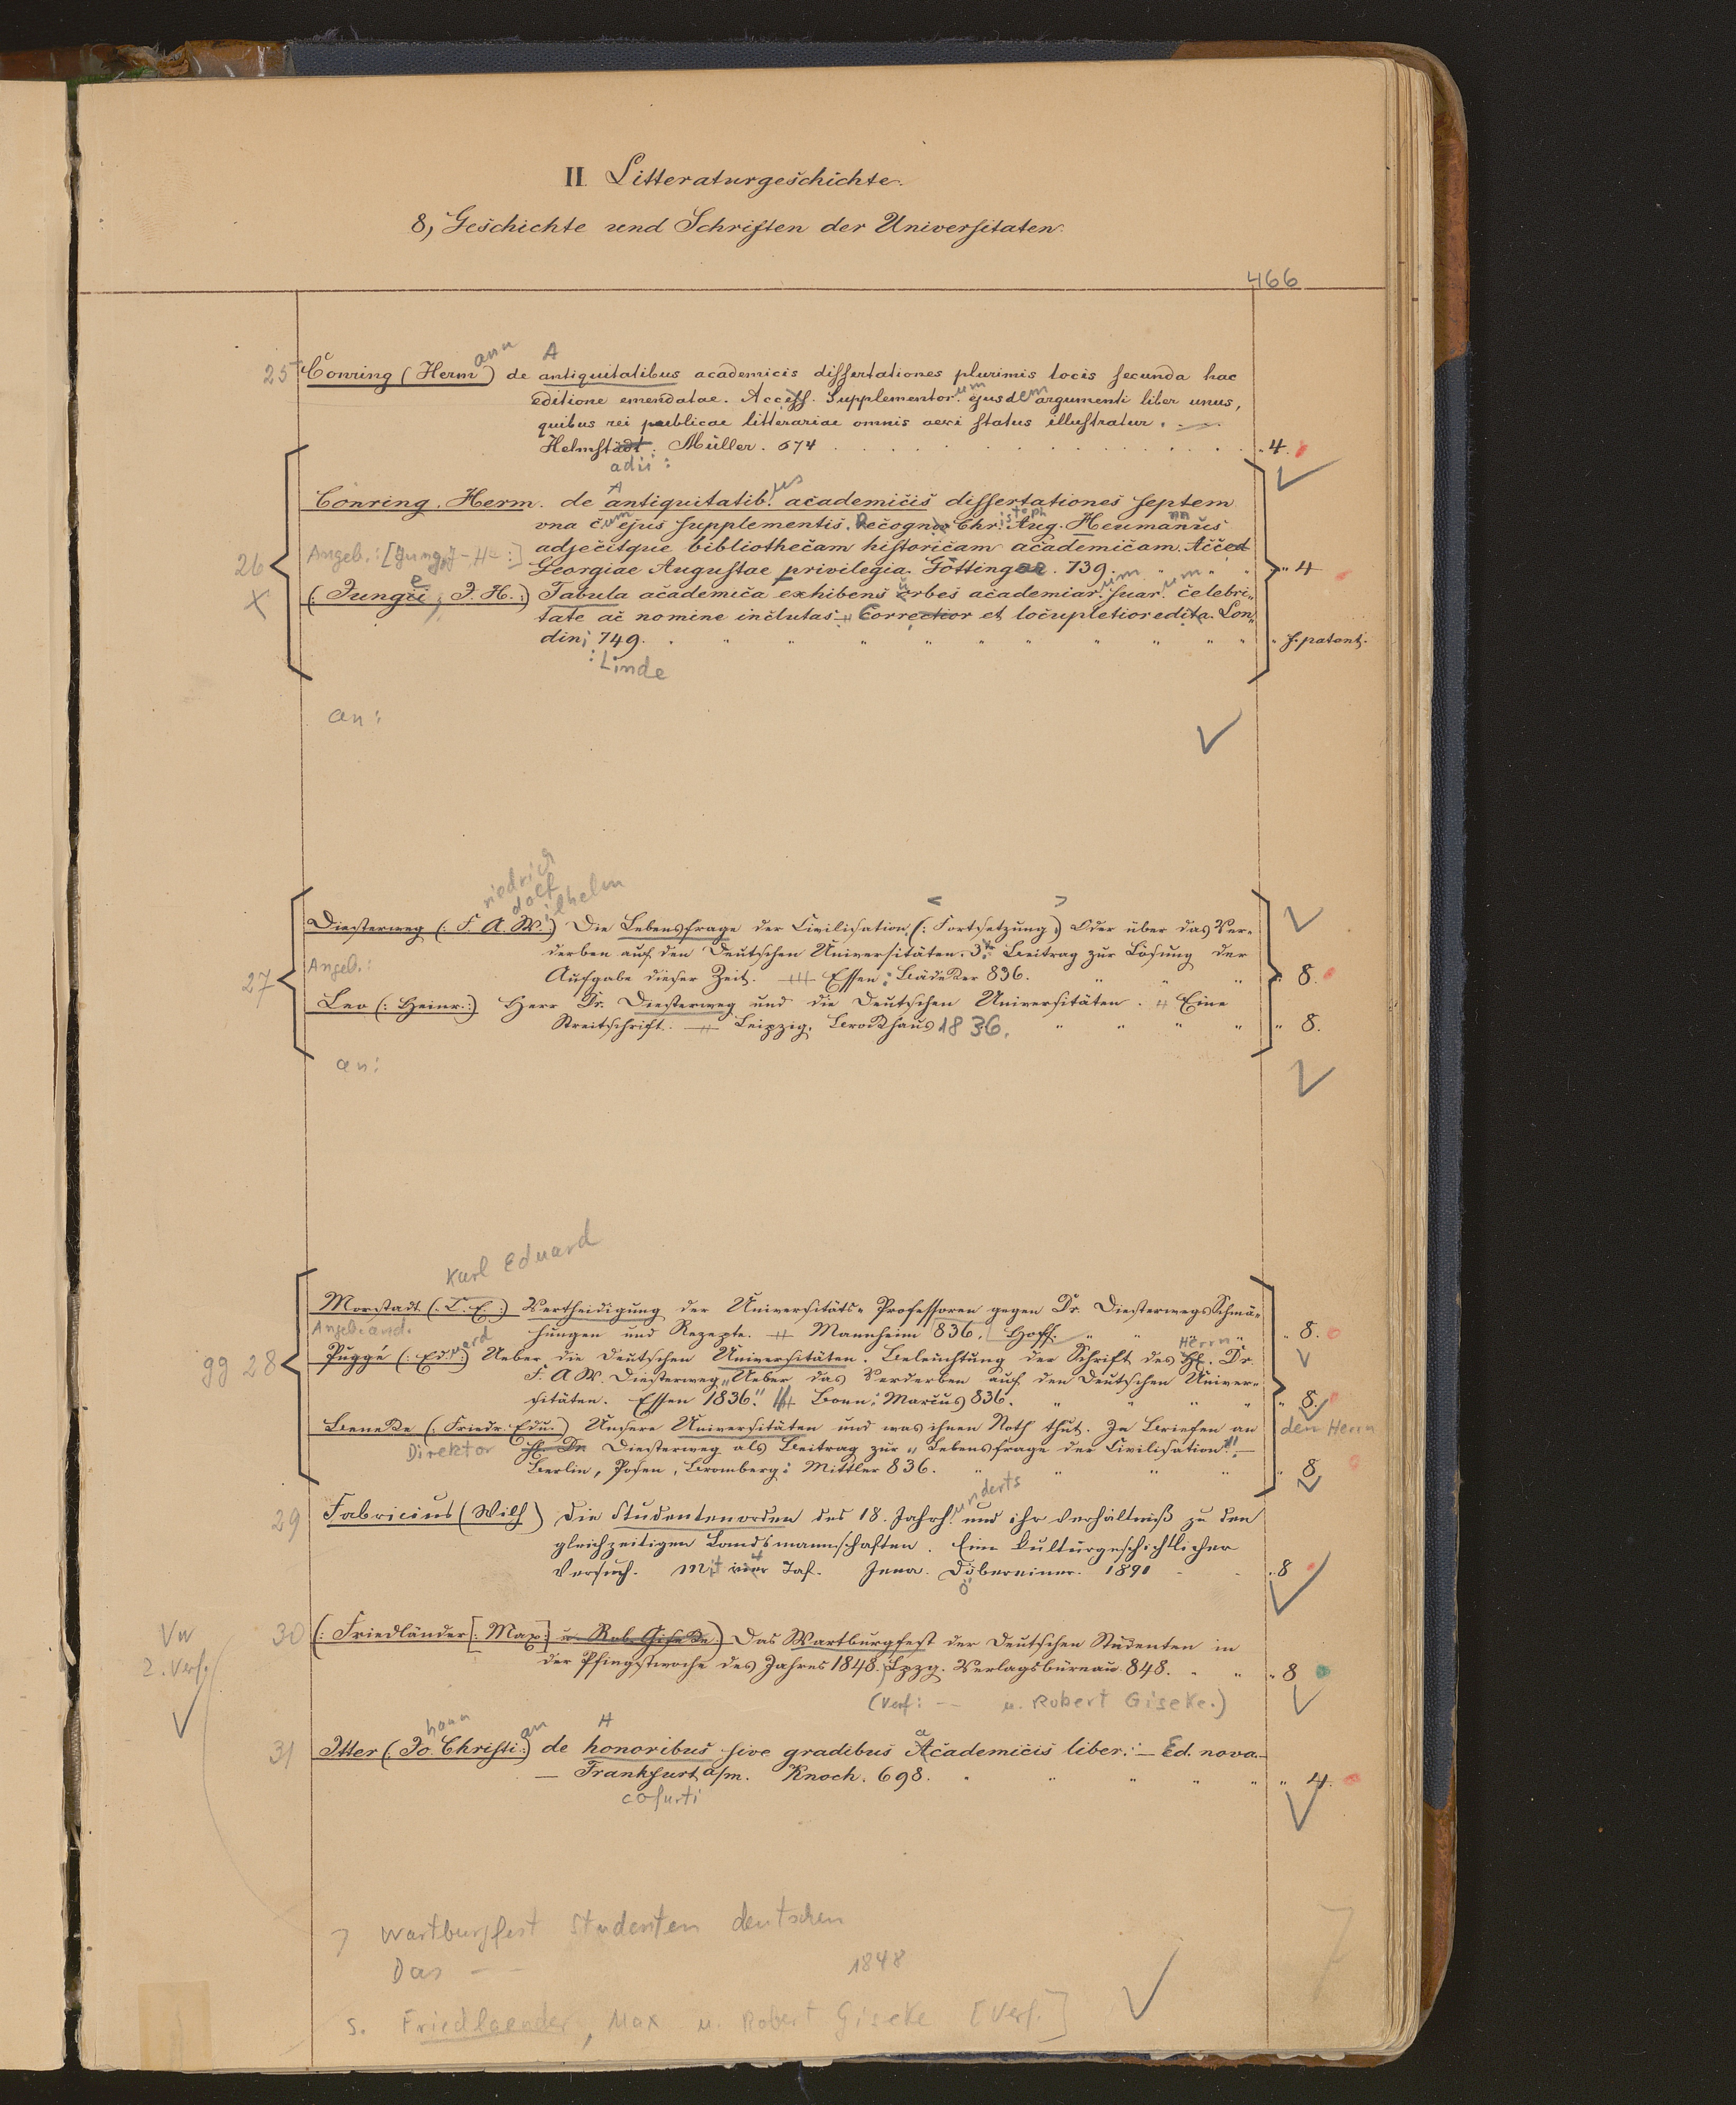 II Litteraturgeschichte.
8, Geschichte und Schriften der Universitaten.
466
ann A
25 Conring (Herm) de antiquitatibus academicis dissertationes plurimis locis secunda hac
editione emendatae. Access. Supplementor.um ejusdem argumenti liber unus,
quibus rei publicae litterariae omnis aevi status illustratur.
Helmstadt. Müller. 674 4.
adii:
A us
Conring. Herm. de antiquitatib. academicis dissertationes septem
una cum ejus supplementis. Recogn. Christoph Aug. Heumannus
26 Angeb.: adjecitque bibliothecam historicam academicam. Acced
Georgiae Augustae privilegia. Götting. 739. 4
(Jungii, J. H.:) Tabula academica exhibens urbes academiar.um suar.um celebri„
tate ac nomine inclutas Correctior et locupletior edita. Lon„
dini 749. f. patent.
: Linde
an:
riedrich
dolf
ilhelm
Diesterweg (: F. A. W.:) Die Lebensfrage der Civilisation (: Fortsetzung:) Oder über das Ver-
derben auf den Deutschen Universitäten. 3r Beitrag zur Lösung der
27 Angeb.: Aufgabe dieser Zeit. Essen: Bädeker 836. 8.
Leo (: Heinr.:) Herr Dr. Diesterweg und die Deutschen Universitäten. Eine
Streitschrift. Leipzig. Brockhaus 1836. 8.
an:
Karl Eduard
Morstadt (: C. E.:) Vertheidigung der Universitäts- Professoren gegen Dr. Diesterwegs Schmä-
Angeb: and. hungen und Rezepte. Mannheim 836. Hoff. 8.
gg 28 Puggé (: Eduard:) Ueber die Deutschen Universitäten. Beleuchtung der Schrift des Herrn Dr.
F. A. W. Diesterweg „Ueber das Verderben auf den Deutschen Univer-
sitäten. Essen 1836." Bonn: Marcus 836. 8.
Beneke (: Friedr. Edu.:) Unsere Universitäten und was ihnen Noth thut. In Briefen an den Herrn
Direktor Dr. Diesterweg als Beitrag zur „Lebensfrage der Civilisation"
Berlin, Posen, Bromberg: Mittler 836. 8
29 Fabricius (Wilh) Die Studentenorden des 18. Jahrh.underts und ihr Verhältniß zu den
gleichzeitigen Landsmannschaften. Eine kulturgeschichtlicher
Versuch. Mit vier Taf. Jena. Döbereiner. 1891 8
ö
Vw
30 (: Friedländer [: Max:] u. Rob. Giseke:) Das Wartburgfest der Deutschen Studenten in
2. Verf. der Pfingstwoche des Jahres 1848. Lpzg. Verlagsbüreau. 848. 8
(Verf: — u. Robert Giseke.)
hann an H a
31 Itter (: Jo. Christi:) de honoribus sive gradibus Academicis liber. — Ed. nova.
Frankfurt a/m. Knoch. 698. 4.
cofurti
7 Wartburgfest Studenten deutschen
Das — 1848
s. Friedlaender, Max u. Robert Giseke [Verf.]
7